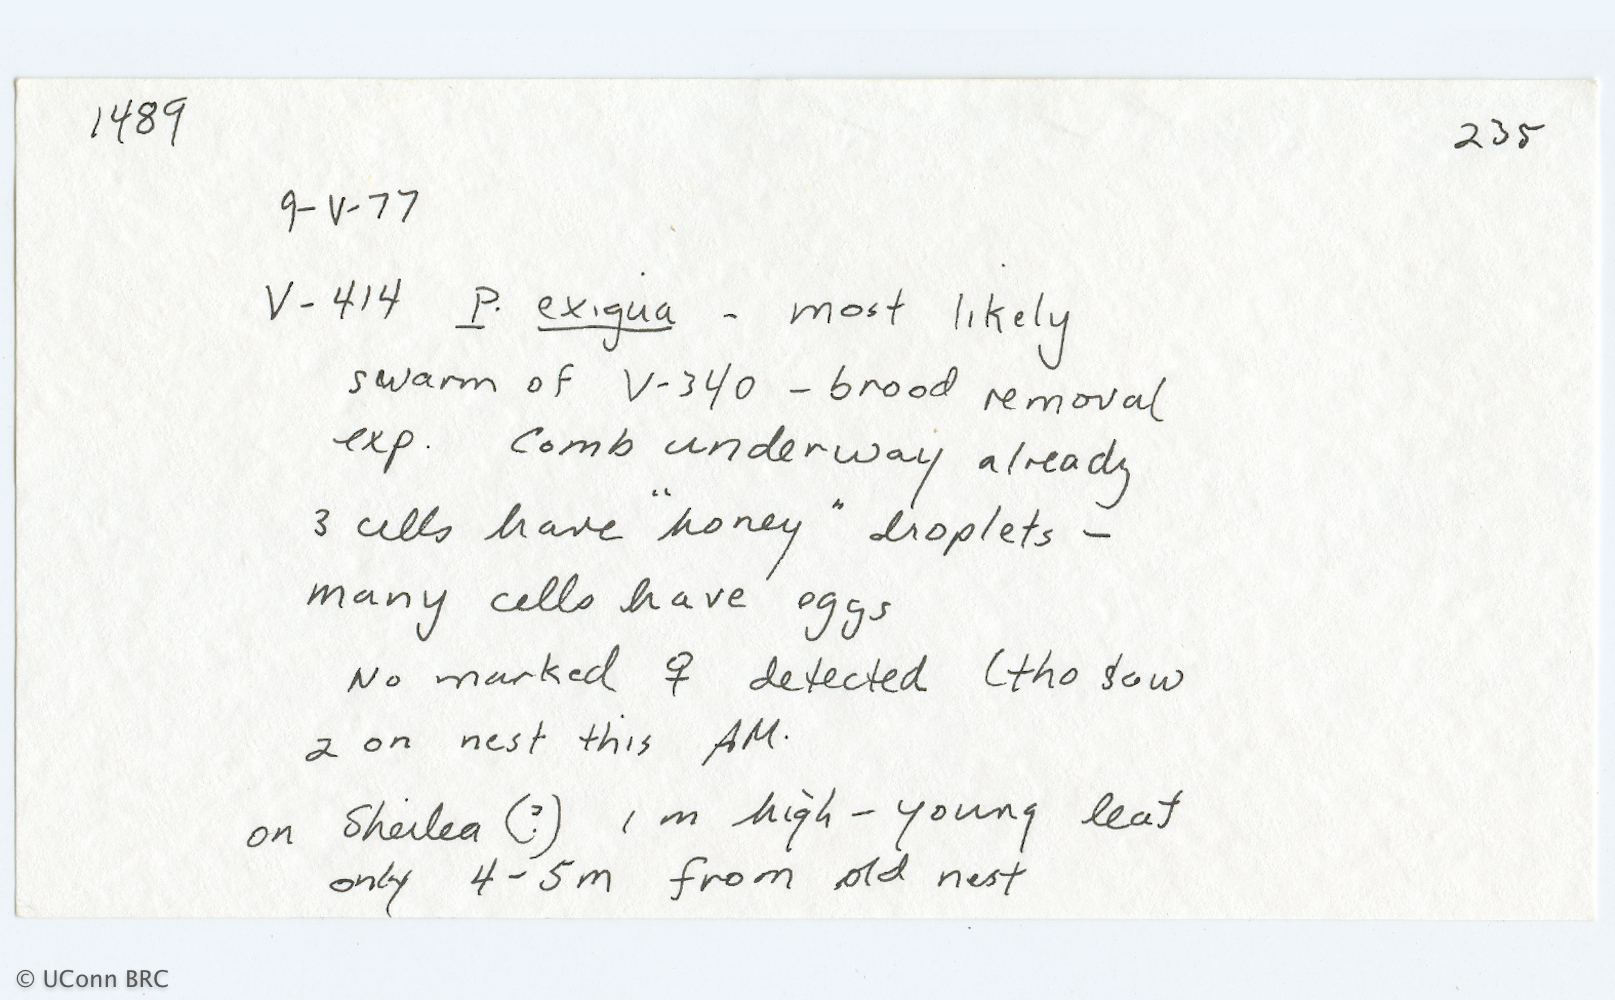 1489
235
9-V-77
V-414 P. exigua - most likely
swarm of V-340 - brood removal
exp. Comb underway already
3 cells have "honey" droplets -
many cells have eggs
No marked ♀ detected (tho saw
2 on nest this AM.
on (?) 1 m high - young leaf
only 4-5m from old nest
© UConn BRC